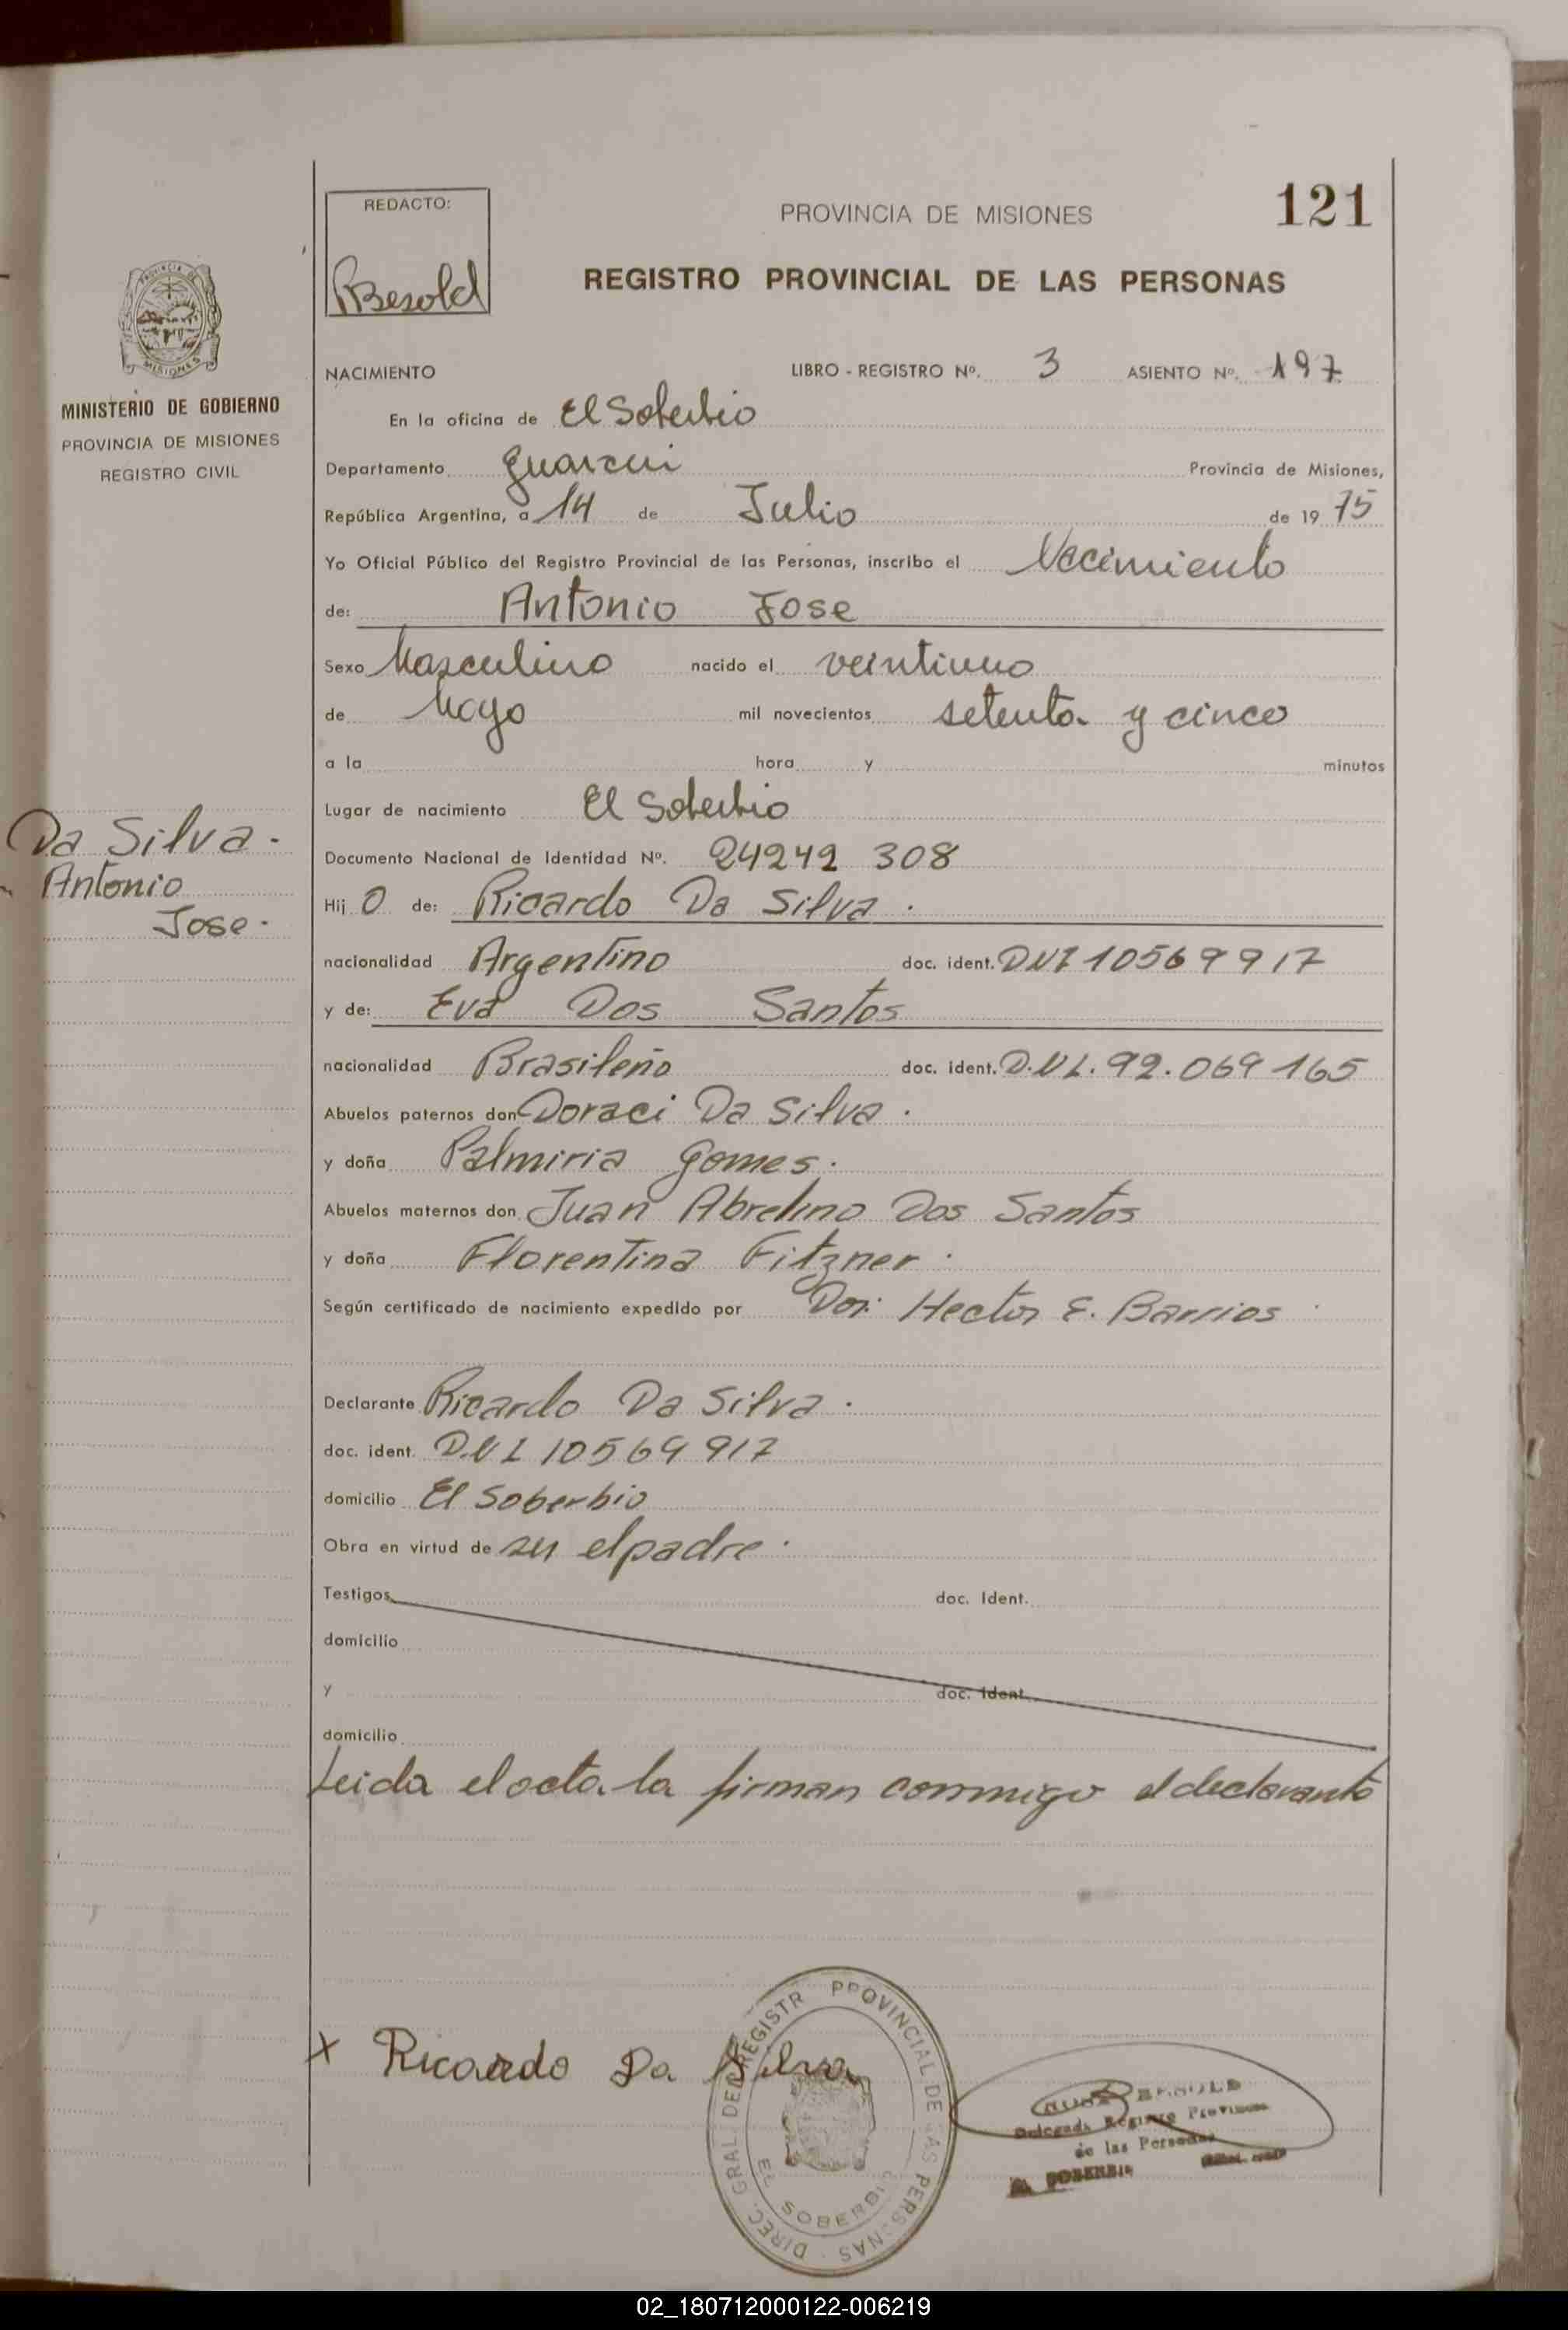 121
REDACTO:
Besold
PROVINCIA DE MISIONES
REGISTRO PROVINCIAL DE LAS PERSONAS
PROVINCIA DE MISIONES
MINISTERIO DE GOBIERNO
PROVINCIA DE MISIONES
REGISTRO CIVIL
NACIMIENTO LIBRO - REGISTRO Nº. 3 ASIENTO Nº. 197
En la oficina de El Soberbio
Departamento Guarani Provincia de Misiones,
República Argentina, a 14 de Julio de 19 75
Yo Oficial Público del Registro Provincial de las Personas, inscribo el Nacimiento
de: Antonio Jose
Sexo Masculino nacido el veintiuno
de Mayo mil novecientos setenta y cinco
a la hora y minutos
Lugar de nacimiento El Soberbio
Da Silva -
Antonio
Jose -
Documento Nacional de Identidad Nº. 24242 308
Hij O de: Ricardo Da Silva .
nacionalidad Argentino doc. ident. DNI 10569917
y de: Eva Dos Santos
nacionalidad Brasileño doc. ident. D.N I. 92.069 165
Abuelos paternos don Doraci Da Silva .
y doña Palmiria Gomes .
Abuelos maternos don Juan Abrelino Dos Santos
y doña Florentina Fitzner .
Según certificado de nacimiento expedido por Dor: Hector E. Barrios
Declarante Ricardo Da Silva .
doc. ident. D.N I 10569 917
domicilio El Soberbio
Obra en virtud de su el padre .
Testigos doc. Ident.
domicilio
y doc. Ident.
domicilio
Leida el acta la firman conmigo el declarante
x Ricardo Da Silva
DIREC. GRAL. DEL REGISTR PROVINCIAL DE LAS PERSONAS
EL SOBERBIO
BESOLD
Delegada Registro Provincial
de las Personas
EL SOBERBIO
02_180712000122-006219